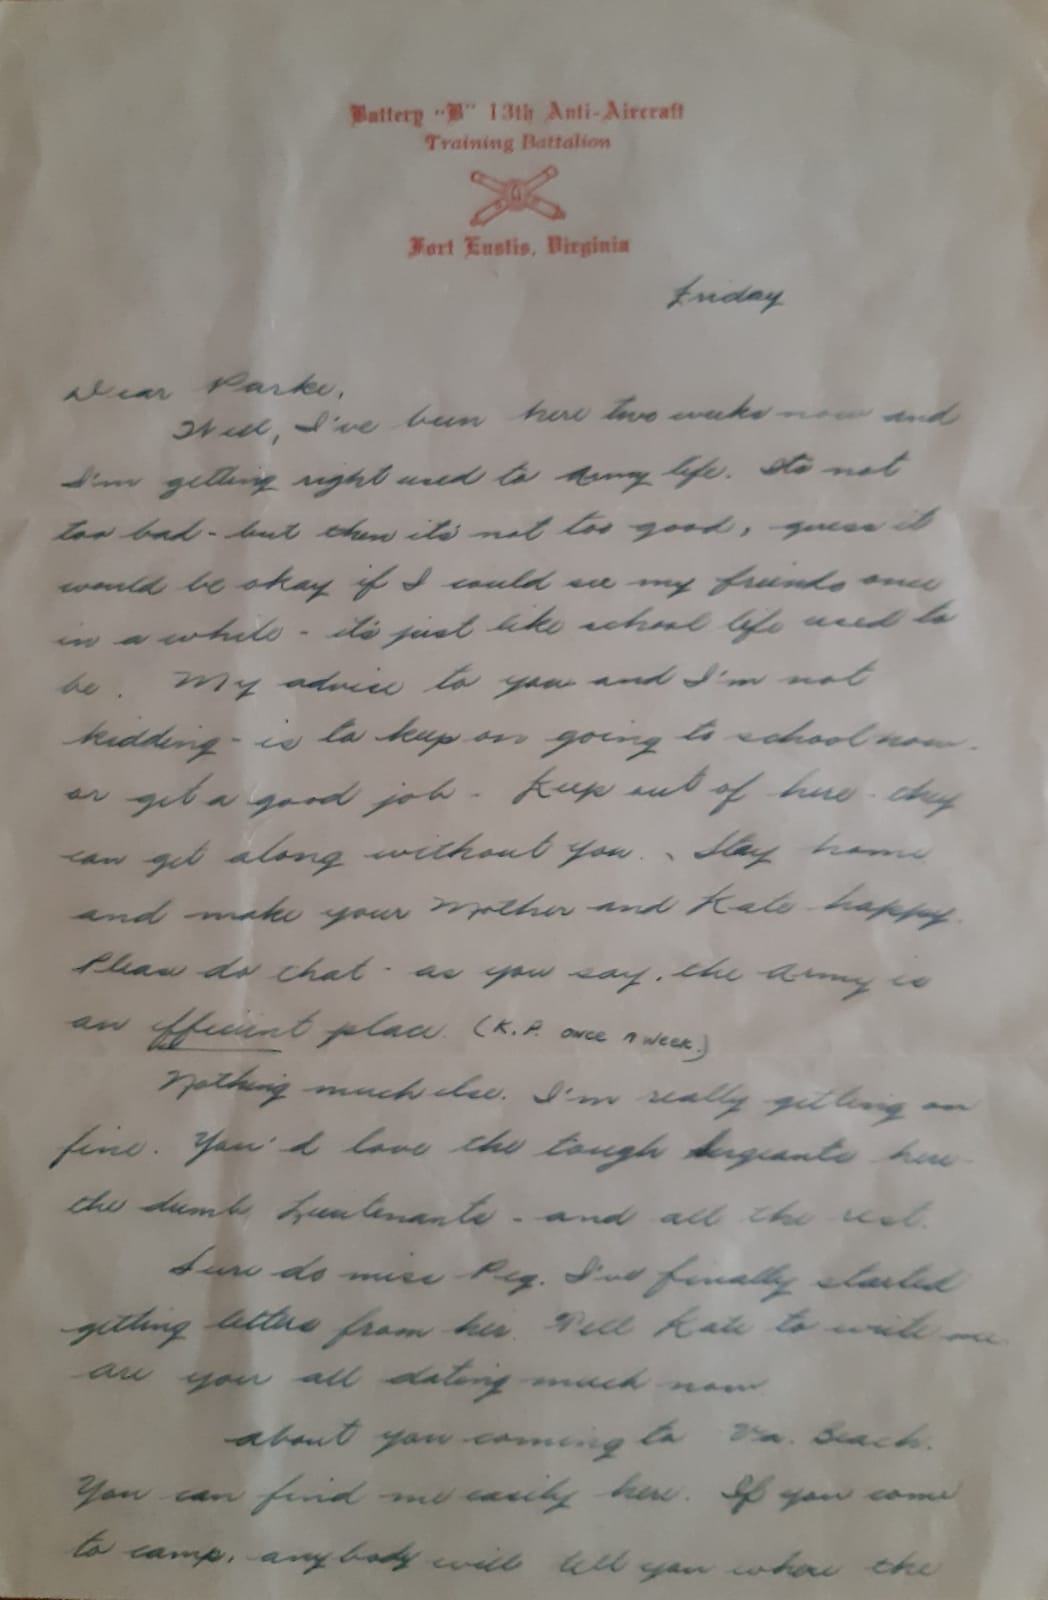 Battery "B" 13th Anti-Aircraft
Training Battalion
Fort Eustis, Virginia
Friday
Dear Parke,
Well, I've been here two weeks now and
I'm getting right used to Army life. Its not
too bad - but then it's not too good, guess it
would be okay if I could see my friends once
in a while - it's just like school life used to
be. My advise to you and I'm not
kidding - is to keep on going to school now -
or get a good job - Keep out of here - they
can get along without you. - Stay home
and make your Mother and Kate happy.
Please do that - as you say, the Army is
an efficient place. (K.P. once a week.)
Nothing much else. I'm really getting on
fine. You'd love the tough Sergeants here -
the dumb Lieutenants - and all the rest.
Sure do miss Peg. I've finally started
getting letters from her. Tell Kate to write me.
are you all dating much now
about you coming to Va. Beach.
You can find me easily here. If you come
to camp, anybody will tell you where the